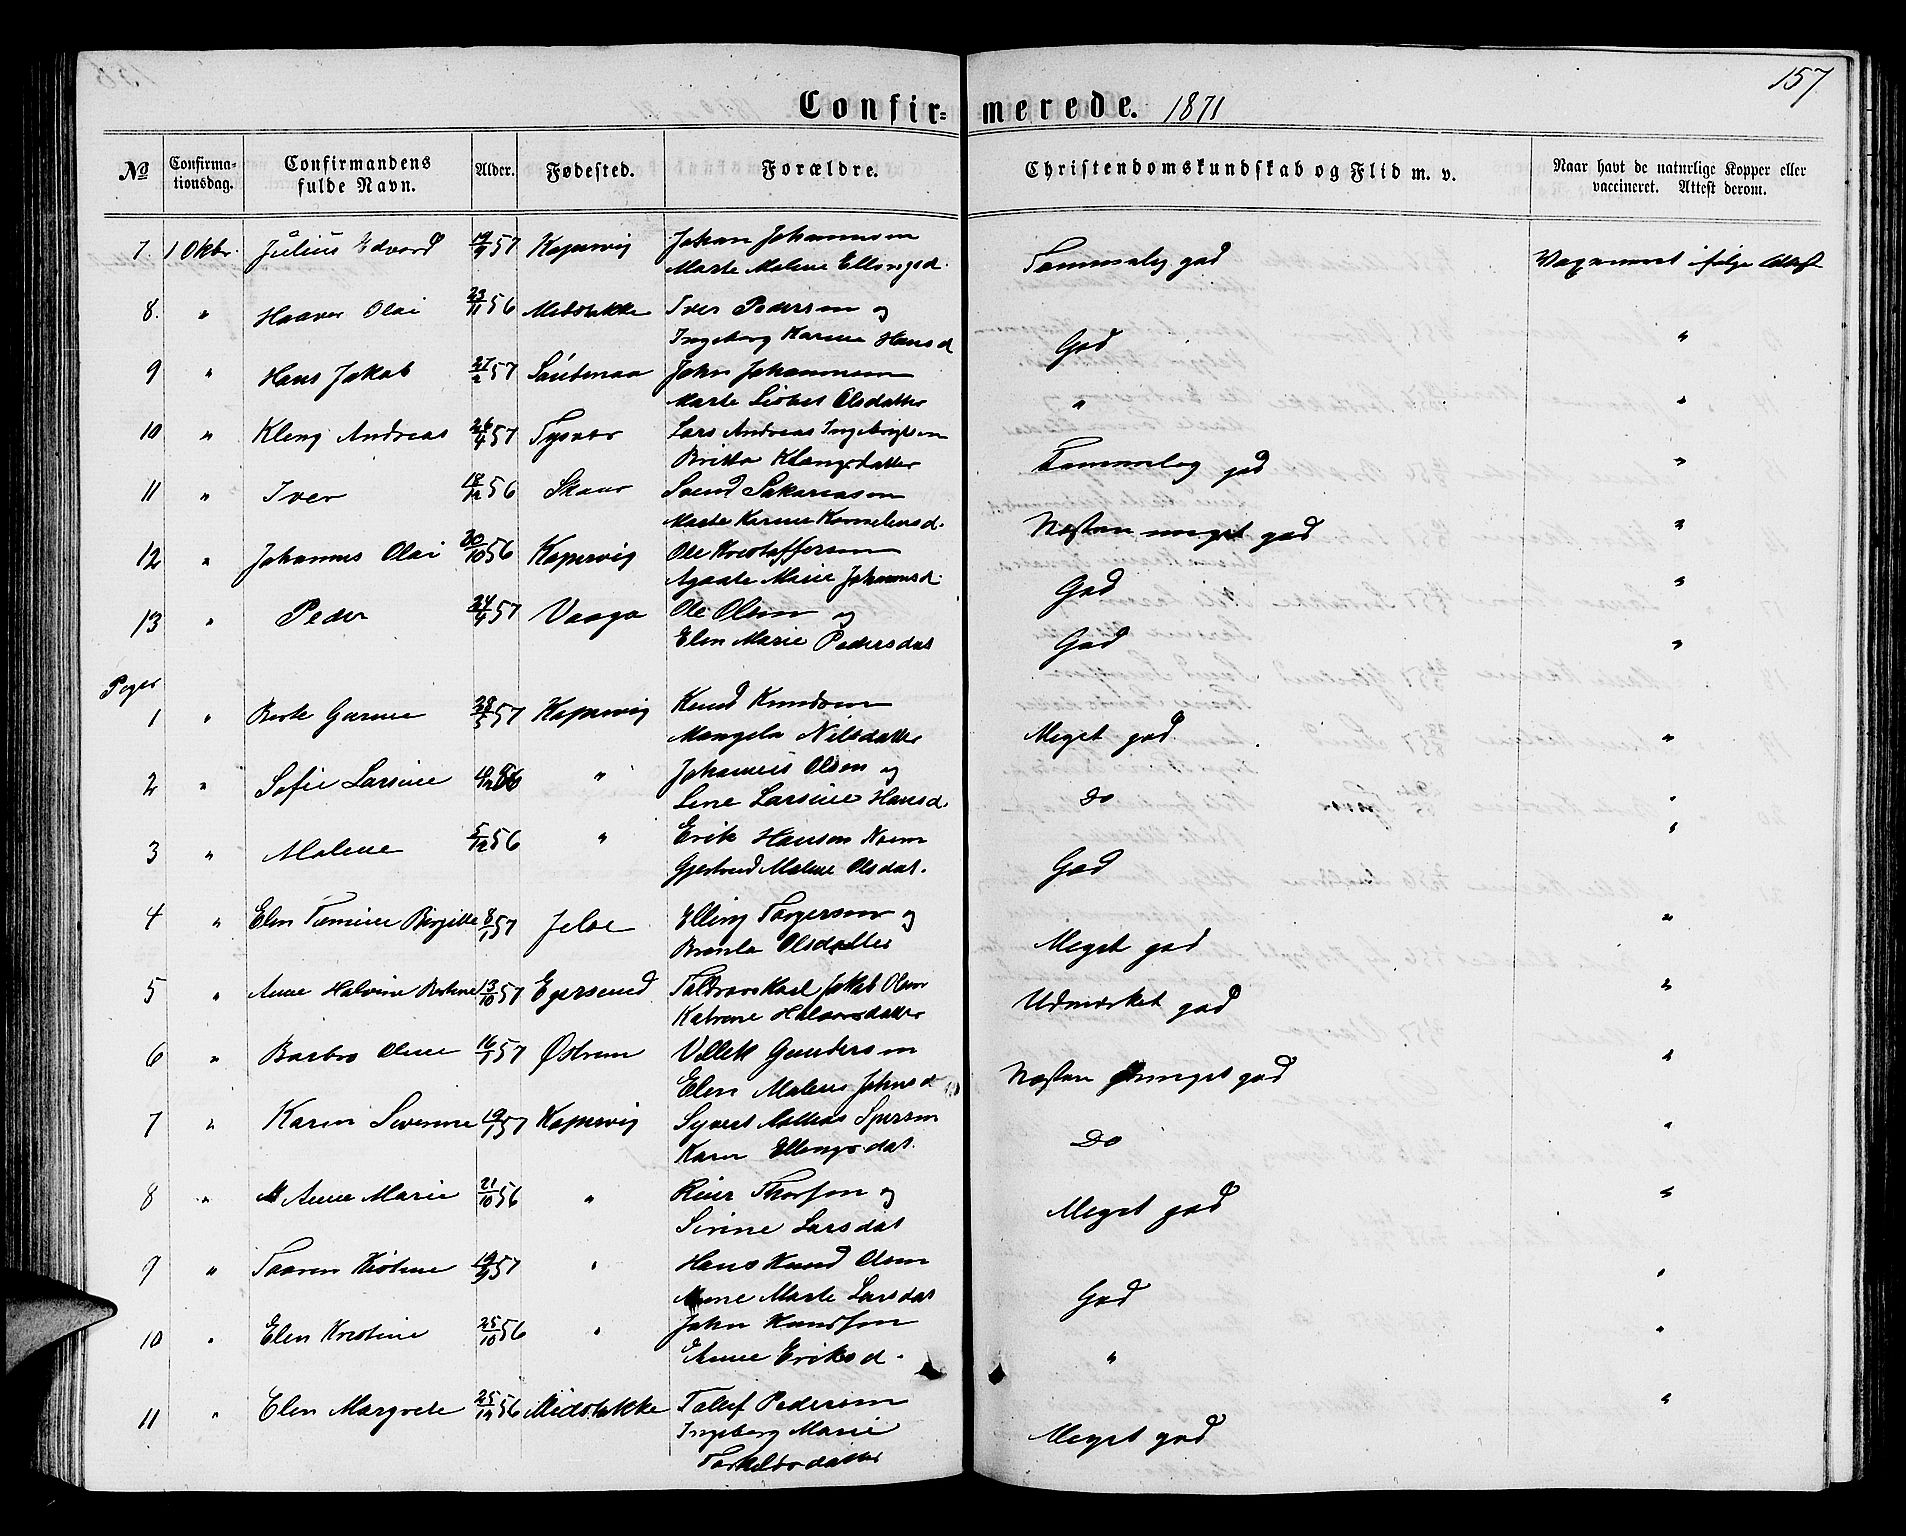 157
Confir= merede. 1871
No Confirma-tionsdag. Confirmandens fulde Navn. Alder. Fødested. Forældre. Christendomskundskab og Flid m. v. Naar havt de naturlige Kopper eller vaccineret. Attest derom.
7. 1 Oktbr. Julius Edvard 19/9 57 Kopervig Johan Johannesen
Marte Malene Ellingsd. Temmelig god Vaxineret ifølge Attest
8. " Haaver Olai 23/11 56 Medstokke Iver Pedersen og
Ingeborg Karine Hansd God "
9 " Hans Jakob 21/2 57 John Johannesen
Marte Olsdatter " "
10 " Kleng Andreas 26/4 57 Tysvær Lars Andreas Ingebrigtsen
Britta Klengsdatter Temmelig god "
11 " Iver 18/12 56 Skaar Svend Sakariasen
Marte Karine Korneliusd. Næsten meget god "
12 " Johannes Olai 30/10 56 Kopervig Ole Kristoffersen
Agaate Marie Johannesd. God "
13 " Peder 24/4 57 Vaaga Ole Olsen og
Elen Marie Pedersdat God "
Piger
1 " Berte Gurine 28/3 57 Kopervig Knud Knudsen
Mangela Nilsdatter Meget god "
2 " Sofie Larsine " Johannes Olsen og
Lene Larsine Hansd. Do "
3 " Malene 5/12 56 " Erik Hanson
Gjertrud Malene Olsdat. God "
4 " Elen Birgitte 8/1 57 Jeloe Elling Torgersen og
Olsdatter Meget god "
5 " Anne Halvine Bertine 13/10 57 Egersund Jakob Olsen
Katrine Halvorsdatter Udmærket god "
6 " Barbro Oline 16/1 57 Østrem Villik Gundersen
Elen Malene Johnsd Næsten meget god "
7 " Karen Severine 19/1 57 Kopervig Syvert Mathias
Karen Ellingsdat. Do "
8 " Anne Marie 21/10 56 " Reier Thorsen og
Sirine Larsdat Meget god "
9 " Taaren Kistine 19/9 57 " Hans Knud Olsen
Anne Marte Larsdat God "
10 " Elen Kristine 25/10 56 " John Knudsen
Anne Eriksd. " "
11 " Elen Margrete 25/12 56 Midstokke Tollef Pedersen
Ingeborg Marie
Torkelsdatter Meget god "